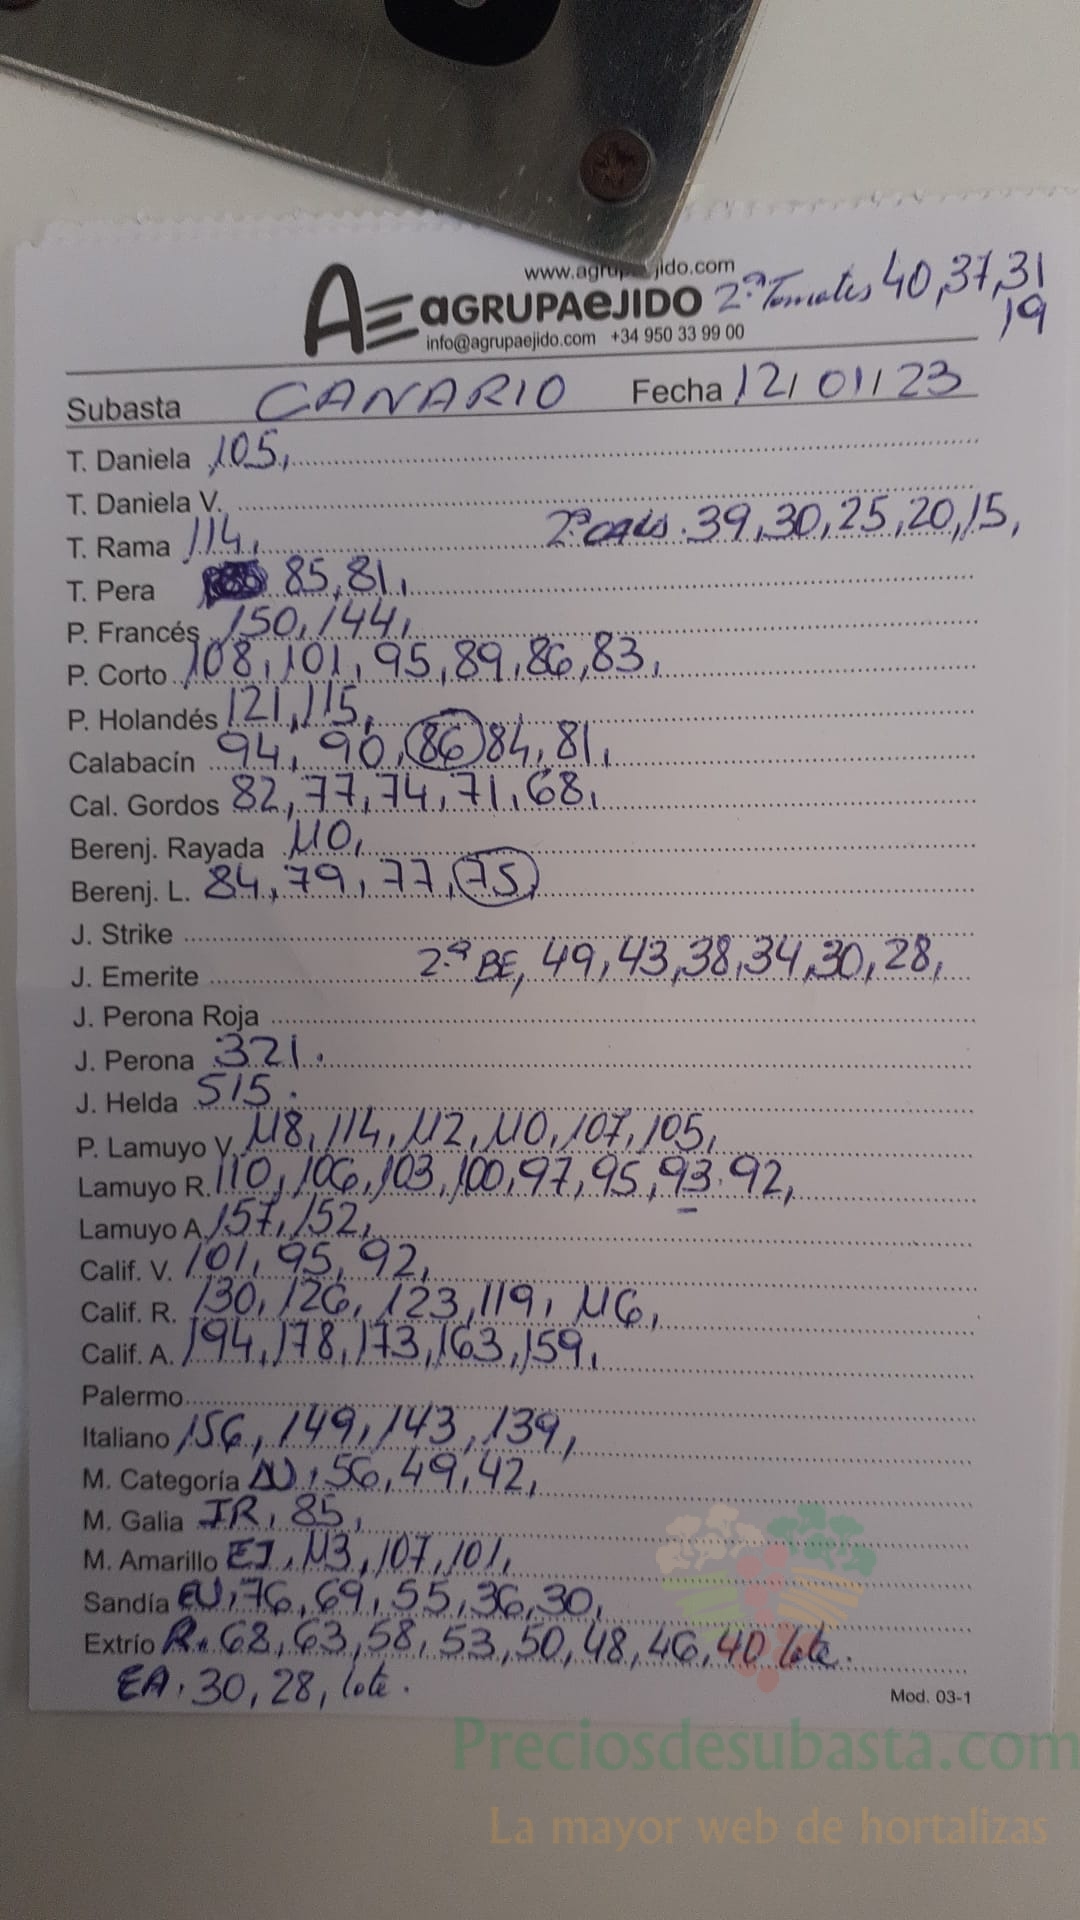 www.agrupaejido.com
AE aGRUPAeJIDO 2.ª Tomates 40,37,31
19
info@agrupaejido.com +34 950 33 99 00
Subasta CANARIO Fecha 12/01/23
T. Daniela 105,
T. Daniela V.
2ª cal. 39,30,25,20,15,
T. Rama 114,
T. Pera 85,81,
P. Francés 150,144,
P. Corto 108,101,95,89,86,83,
P. Holandés 121,115,
Calabacín 94, 90,86 84,81,
Cal. Gordos 82,77,74,71,68,
Berenj. Rayada 110,
Berenj. L. 84,79,77,75,
J. Strike
J. Emerite 2.ª BE, 49,43,38,34,30,28,
J. Perona Roja
J. Perona 321.
J. Helda 515.
P. Lamuyo V. 118,114,112,110,107,105,
Lamuyo R. 110,106,103,100,97,95,93.92,
Lamuyo A. 157,152,
Calif. V. 101,95,92,
Calif. R. 130,126,123,119,116,
Calif. A. 194,178,173,163,159,
Palermo
Italiano 156,149,143,139,
M. Categoría 56,49,42,
M. Galia IR, 85,
M. Amarillo EJ, 113,107,101,
Sandía EU,76,69,55,36,30,
Extrío R. 68,63,58,53,50,48,46,40 lote.
EA. 30,28, lote.
Mod. 03-1
Preciosdesubasta.com
La mayor web de hortalizas